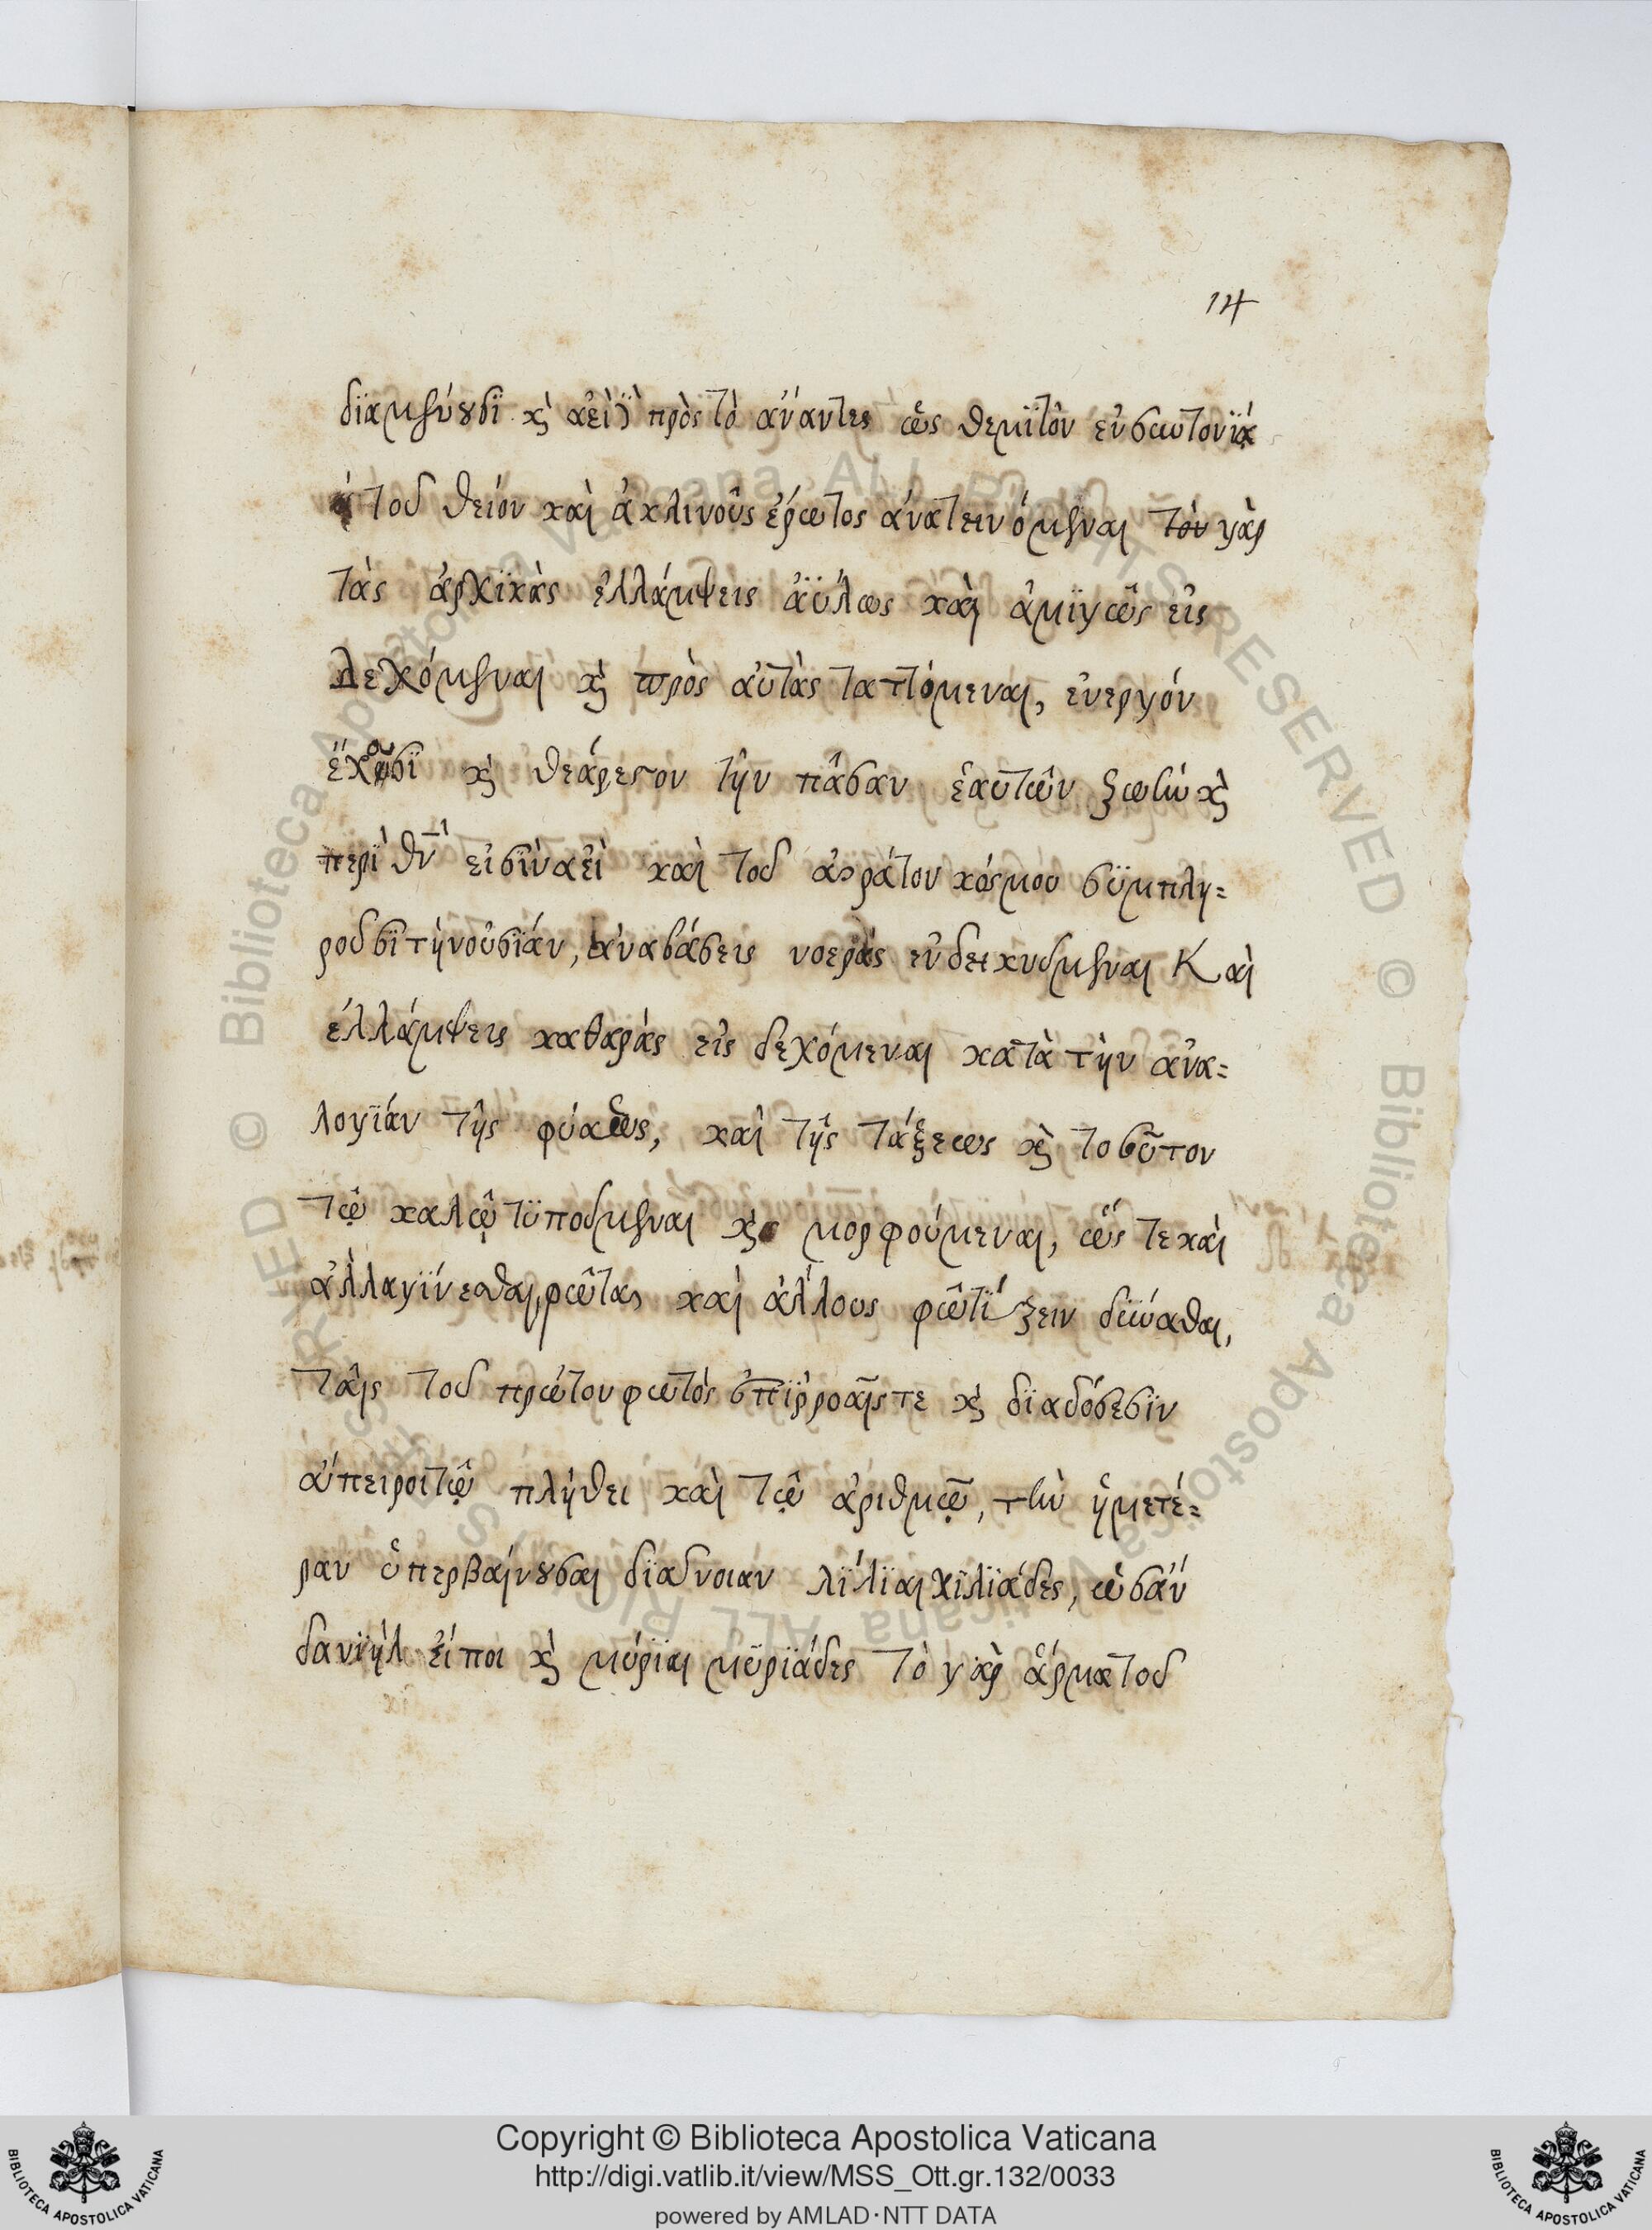 14
διαμένουσι καὶ ἀεὶ πρὸς τὸ ἄναντες ὡς θεμιτὸν ἐν συντονίᾳ
τοῦ θείου καὶ ἀκλινοῦς ἔρωτος ἀνατεινόμεναι τὸν γὰρ
τὰς ἀρχικὰς ἐλλάμψεις ἀΰλως καὶ ἀμιγῶς εἰς
δεχόμεναι καὶ πρὸς αὐτὰς ταττόμεναι, ἐνεργόν
ἔχουσι καὶ θεάρεστον τὴν πᾶσαν ἑαυτῶν ζωὴν καὶ
περὶ θν̄ εἰσὶν ἀεὶ καὶ τοῦ ἀοράτου κόσμου συμπλη-
ροῦσι τὴν οὐσίαν, ἀναβάσεις νοερὰς ἐνδεικνύμεναι Καὶ
ἐλλάμψεις καθαρὰς εἰς δεχόμεναι κατὰ τὴν ἀνα-
λογίαν τῆς φύσεως, καὶ τῆς τάξεως καὶ τοσοῦτον
τῷ καλῷ τυπούμεναι καὶ μορφούμεναι, ὥς τε καὶ
ἄλλα γίνεσθαι φῶτα καὶ ἄλλους φωτίζειν δύνασθαι,
ταῖς τοῦ πρώτου φωτὸς ἐπιρροαῖς τε καὶ διαδόσεσιν
ἄπειροι τῷ πλήθει καὶ τῷ ἀριθμῷ, τὴν ἡμετέ-
ραν ὑπερβαίνουσαι διάνοιαν χίλιαι χιλιάδες, ὡς ἂν
δανιὴλ εἴποι καὶ μύριαι μυριάδες τὸ γὰρ ἅρμα τοῦ
Copyright © Biblioteca Apostolica Vaticana
http://digi.vatlib.it/view/MSS_Ott.gr.132/0033
powered by AMLAD·NTT DATA